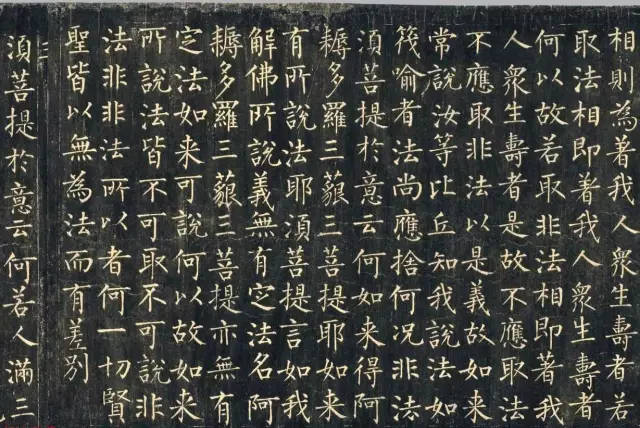 相則為著我人衆生壽者若
取法相即著我人衆生壽者
何以故若取非法相即著我
人衆生壽者是故不應取法
不應取非法以是義故如来
常說汝等比丘知我說法如
筏喻者法尚應捨何況非法
須菩提於意云何如来得阿
耨多羅三藐三菩提耶如来
有所說法耶須菩提言如我
解佛所說義無有定法名阿
耨多羅三藐三菩提亦無有
定法如来可說何以故如来
所說法皆不可取不可說非
法非非法所以者何一切賢
聖皆以無為法而有差別
三
須菩提於意云何若人滿三